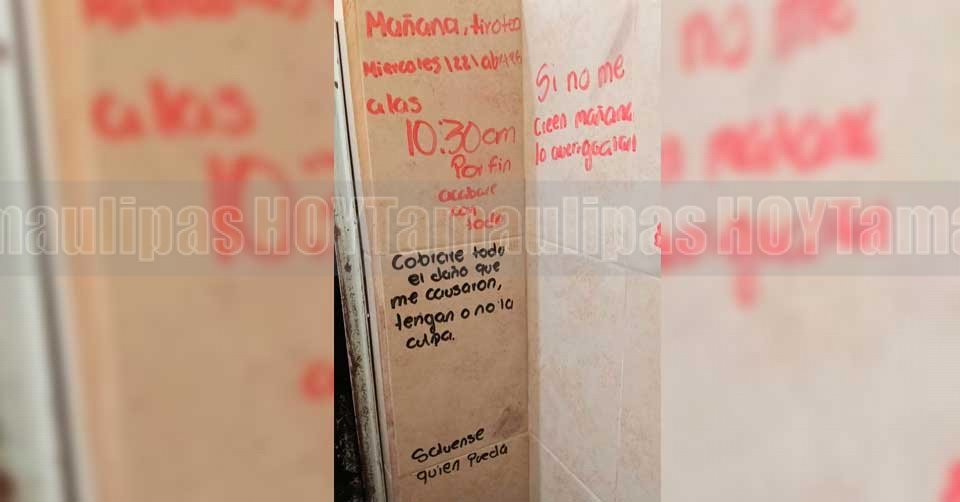 Mañana, tiroteo
Miercoles |22|abril|26
a las
10:30am
Por fin
acabare
con
todo
Cobrare todo
el daño que
me causaron,
tengan o no la
culpa.
Salvense
quien Pueda
Si no me
creen mañana
lo averiguaran
Tamaulipas HOY